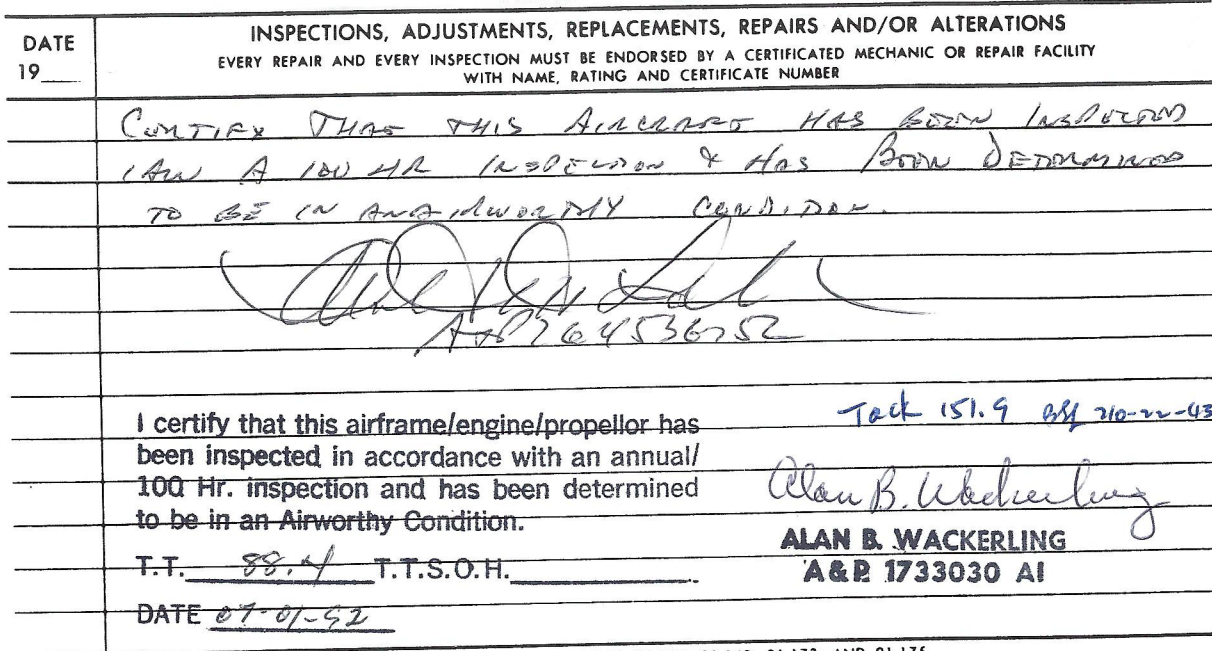 DATE
19
INSPECTIONS, ADJUSTMENTS, REPLACEMENTS, REPAIRS AND/OR ALTERATIONS
EVERY REPAIR AND EVERY INSPECTION MUST BE ENDORSED BY A CERTIFICATED MECHANIC OR REPAIR FACILITY
WITH NAME, RATING AND CERTIFICATE NUMBER
CERTIFY THAT THIS AIRCRAFT HAS BEEN INSPECTED
IAW A 100 HR INSPECTION & HAS BEEN DETERMINED
TO BE IN AN AIRWORTHY CONDITION.
I certify that this airframe/engine/propellor has
been inspected in accordance with an annual/
100 Hr. inspection and has been determined
to be in an Airworthy Condition.
Tack 151.9
Alan B. Wackerling
ALAN B. WACKERLING
A&P 1733030 AI
T.T. 88.4 T.T.S.O.H.
DATE 07-01-92